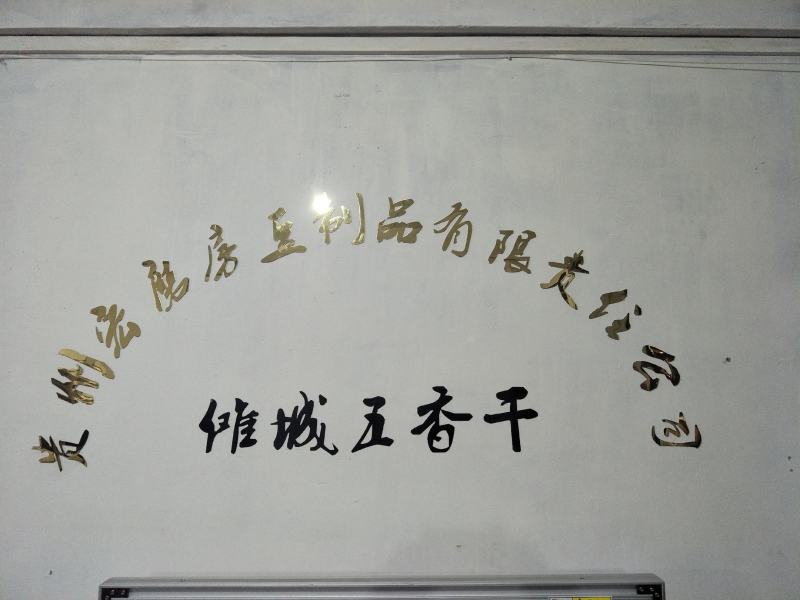 贵州宏房豆制品有限责任公司
傩城五香干